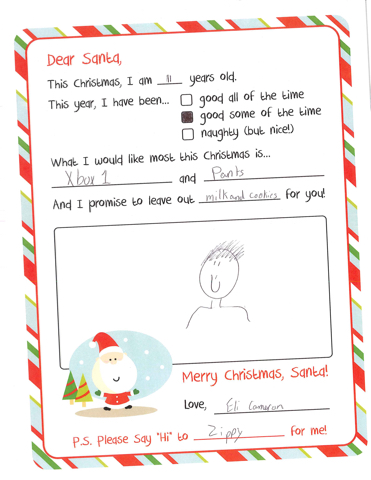 Dear Santa,
This Christmas, I am 11 years old.
This year, I have been... good all of the time
good some of the time
naughty (but nice!)
What I would like most this Christmas is...
Xbox 1 and Pants
And I promise to leave out milk and cookies for you!
Merry Christmas, Santa!
Love, Eli Cameron
P.S. Please Say "Hi" to Zippy for me!